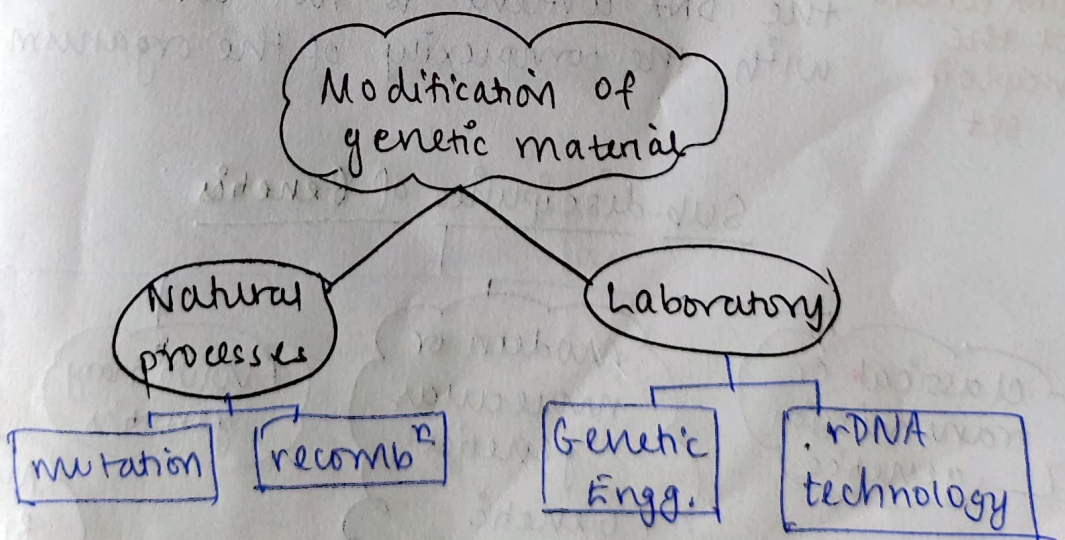 Modification of
genetic material
Natural
processes
Laboratory
mutation
recombⁿ
Genetic
Engg.
rDNA
technology